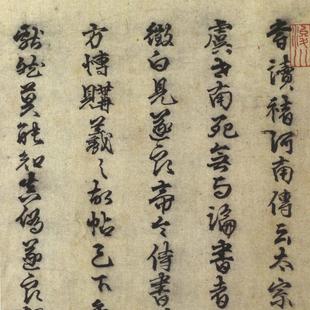 讀褚河南傳云太宗
虞世南死無与論書者
徵白見遂良帝令侍書
方博購羲之故帖天下
獻然莫能知真偽遂良